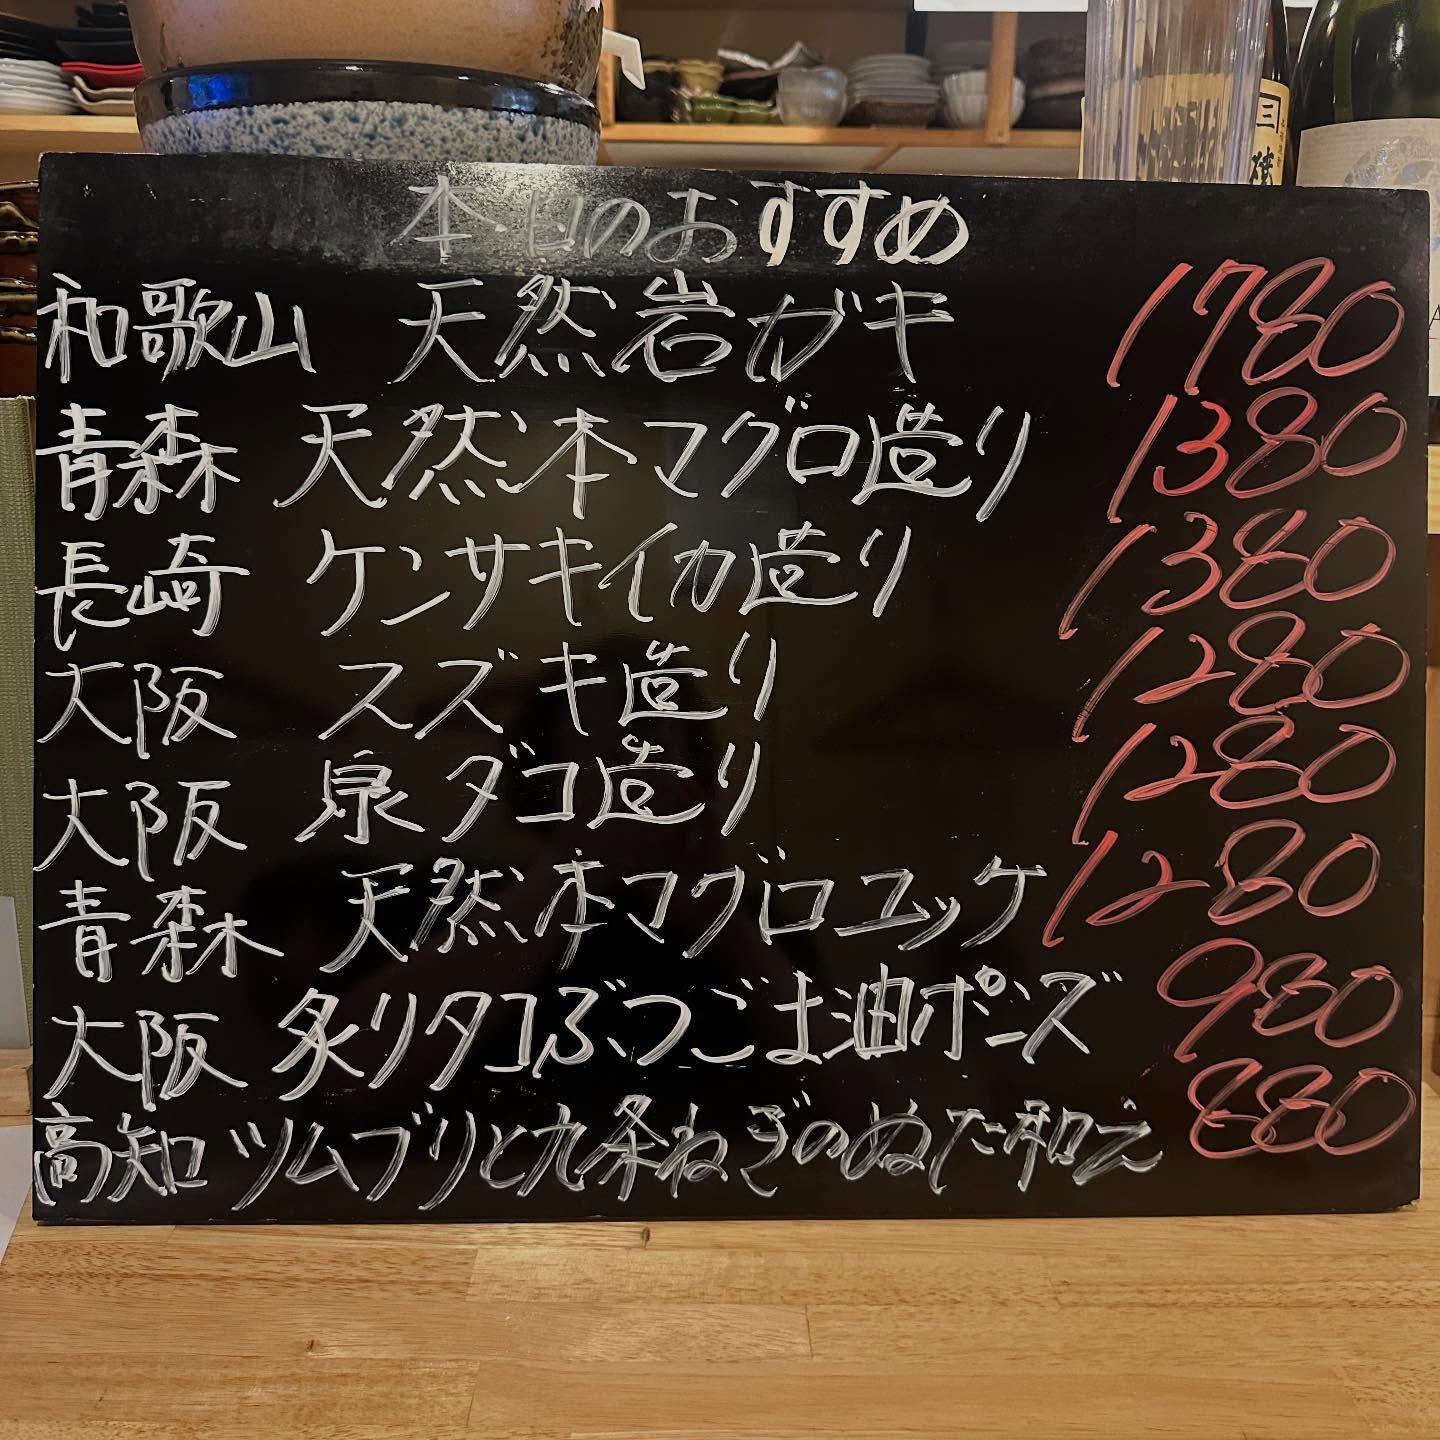 本日のおすすめ
和歌山 天然岩ガキ 1780
青森 天然本マグロ造り 1380
長崎 ケンサキイカ造り 1380
大阪 スズキ造り 1280
大阪 泉ダコ造り 1280
青森 天然本マグロユッケ 1280
大阪 炙りタコぶつごま油ポンズ 980
高知 ツムブリと九条ねぎのぬた和え 880